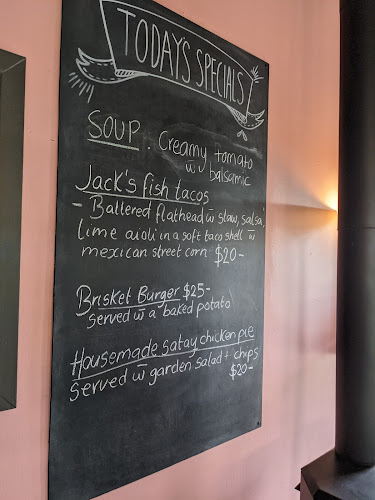 TODAY'S SPECIALS
SOUP. Creamy tomato
w̄ balsamic
Jack's fish tacos
- Battered flathead w̄ slaw, salsa,
lime aioli in a soft taco shell w̄
mexican street corn $20-
Brisket Burger $25-
served w̄ a baked potato
Housemade satay chicken pie
served w̄ garden salad + chips
$20-